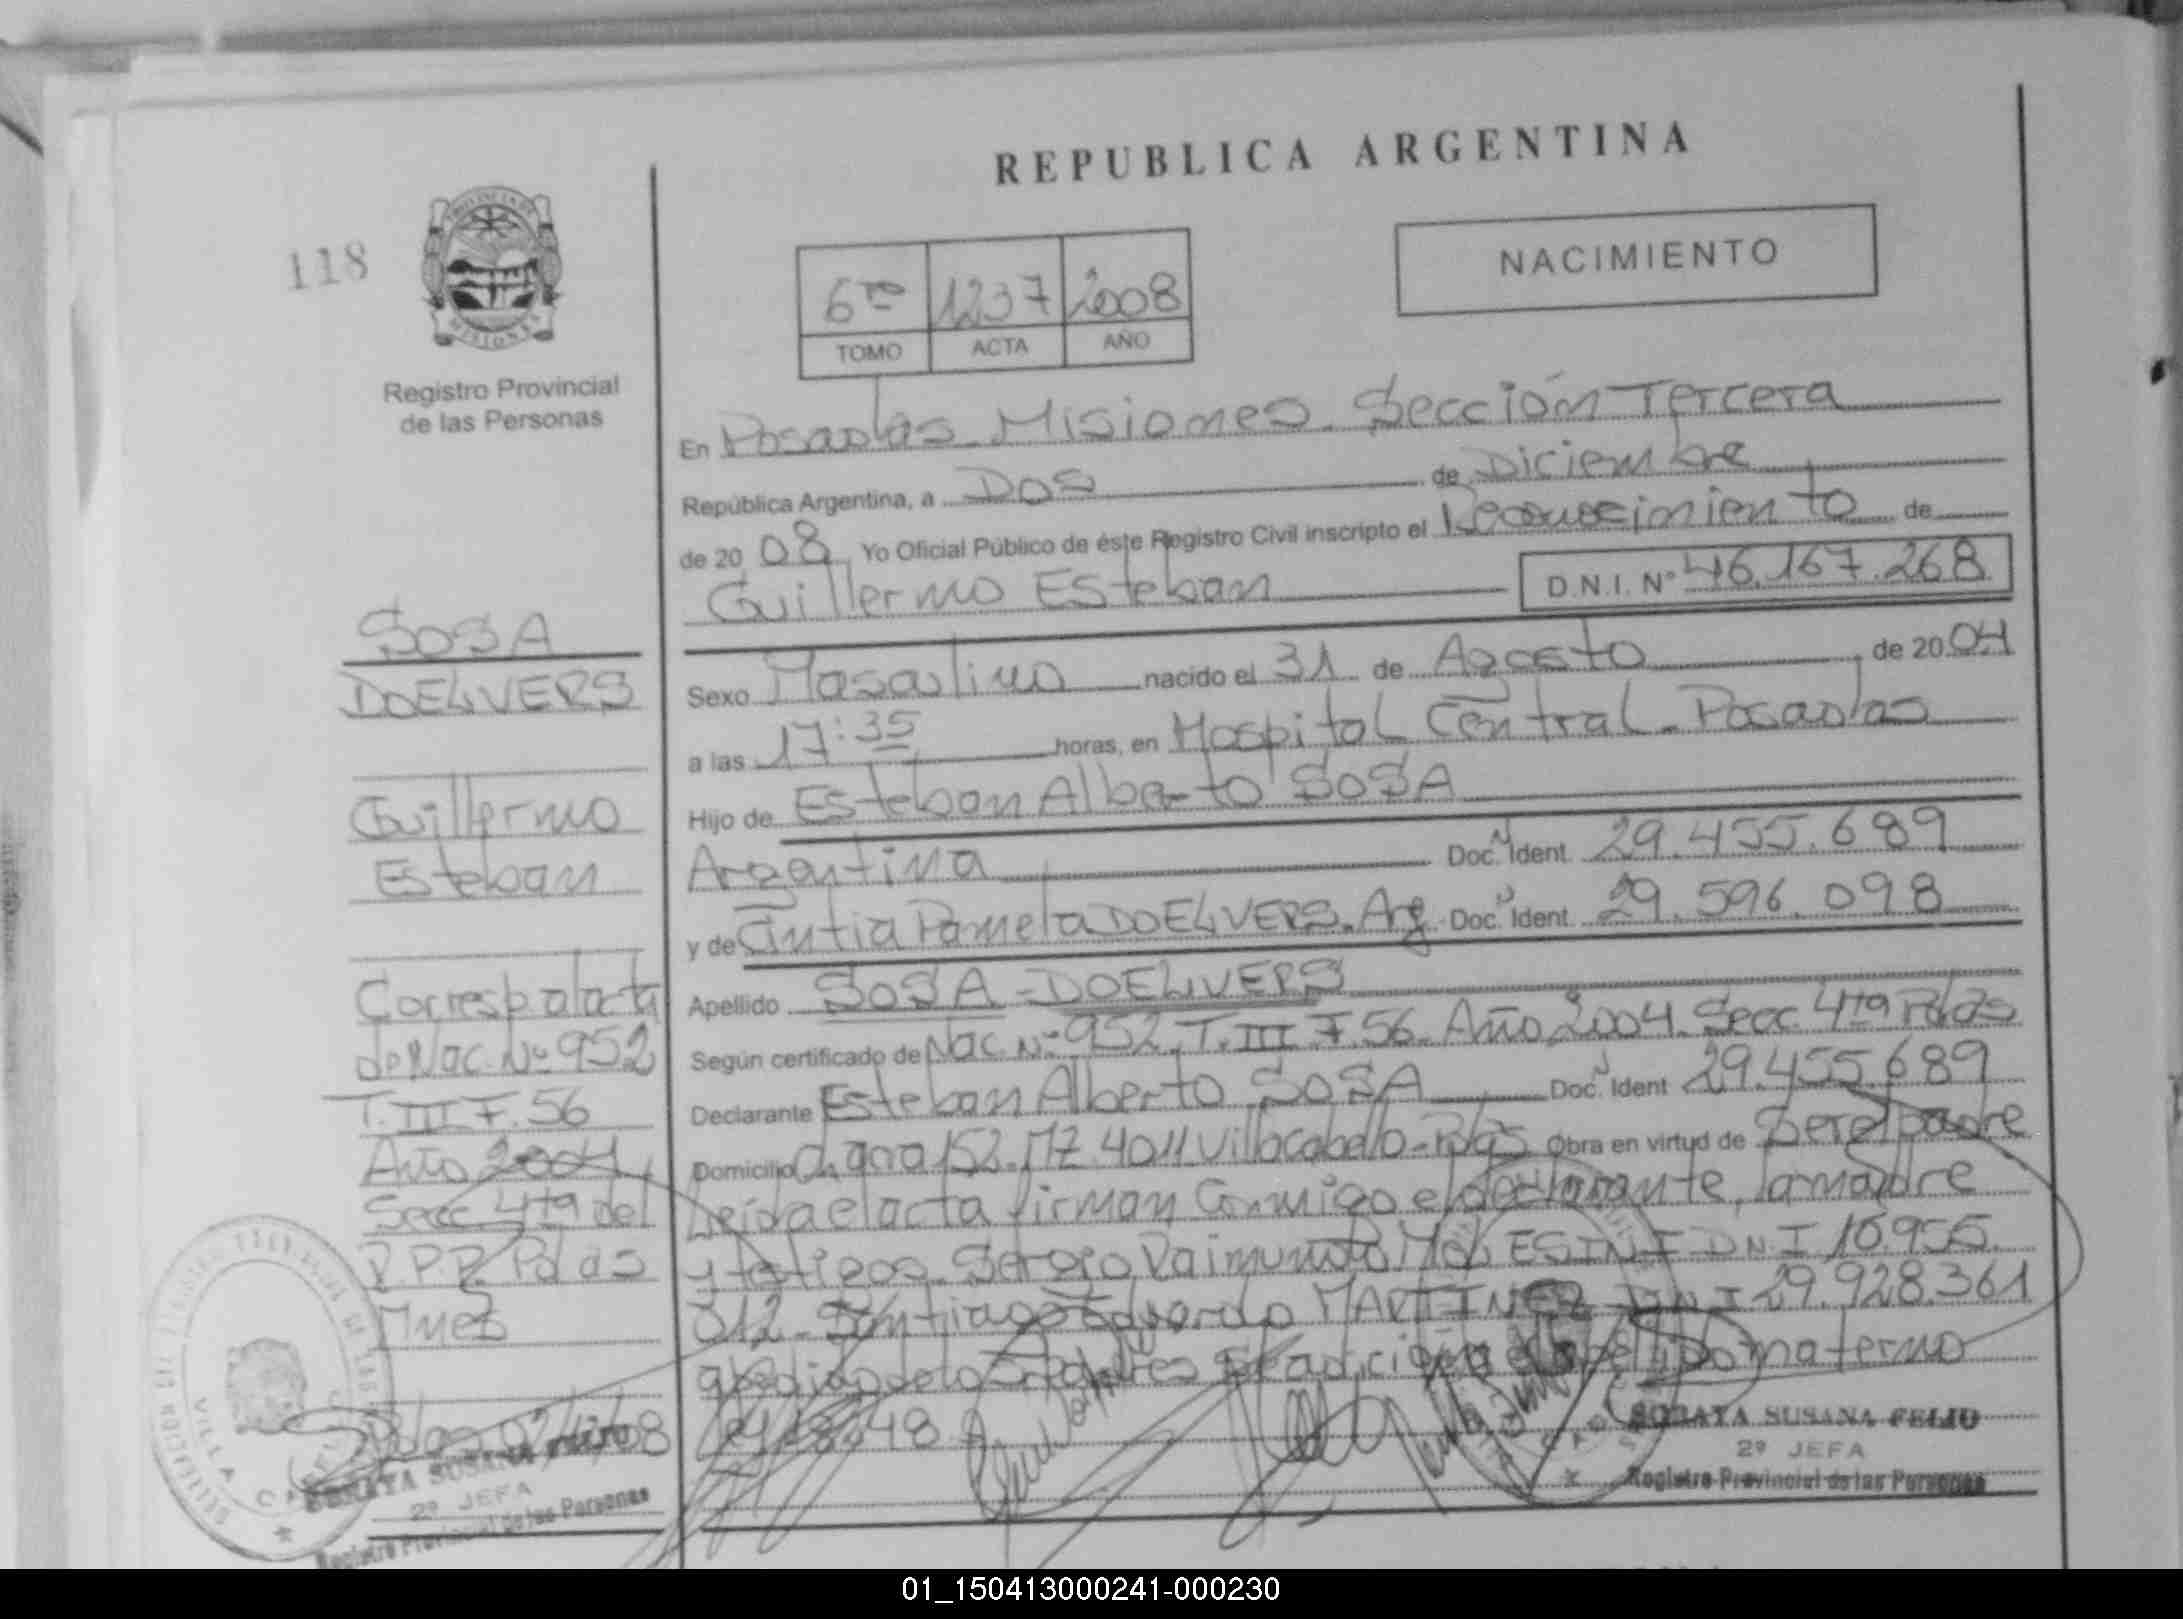 REPUBLICA ARGENTINA
118
PROVINCIA DE
MISIONES
Registro Provincial
de las Personas
NACIMIENTO
6to 1237 2008
TOMO ACTA AÑO
En Posadas Misiones. Sección Tercera
República Argentina, a Dos de Diciembre
de 2008 Yo Oficial Público de éste Registro Civil inscripto el Reconocimiento de
Guillermo Esteban D.N.I. Nº 46.167.268
Sexo Masculino nacido el 31 de Agosto de 2004
a las 17:35 horas, en Hospital Central - Posadas
Hijo de Esteban Alberto SOSA
Argentina Doc. Ident. 29.455.689
y de Cintia Pamela DOELIVERS. Arg. Doc. Ident. 29.596.098
Apellido SOSA - DOELIVERS
Según certificado de Nac. Nº 952. T. III F. 56. Año 2004. Secc. 4ta Pdas
Declarante Esteban Alberto SOSA Doc. Ident 29.455.689
Domicilio Ch. 152. MZ. 4011 Villa Cabello - Pdas Obra en virtud de Ser el padre
Leida el acta firman Conmigo el declarante, la madre
y testigos. Sergio Raimundo DNI 16.955.
012 - Santiago Eduardo MARTINEZ DNI 29.928.361
a pedido de los Padres se adiciona el apellido materno
SOSA
DOELIVERS
Guillermo
Esteban
Corresp al acta
de Nac. Nº 952
T. III F. 56
Año 2004
Secc. 4ta del
R.P.P. Pdas
Mnes
Pdas 02/12/08
SORAYA SUSANA FELIU
2º JEFA
Registro Provincial de las Personas
SORAYA SUSANA FELIU
2º JEFA
Registro Provincial de las Personas
01_150413000241-000230